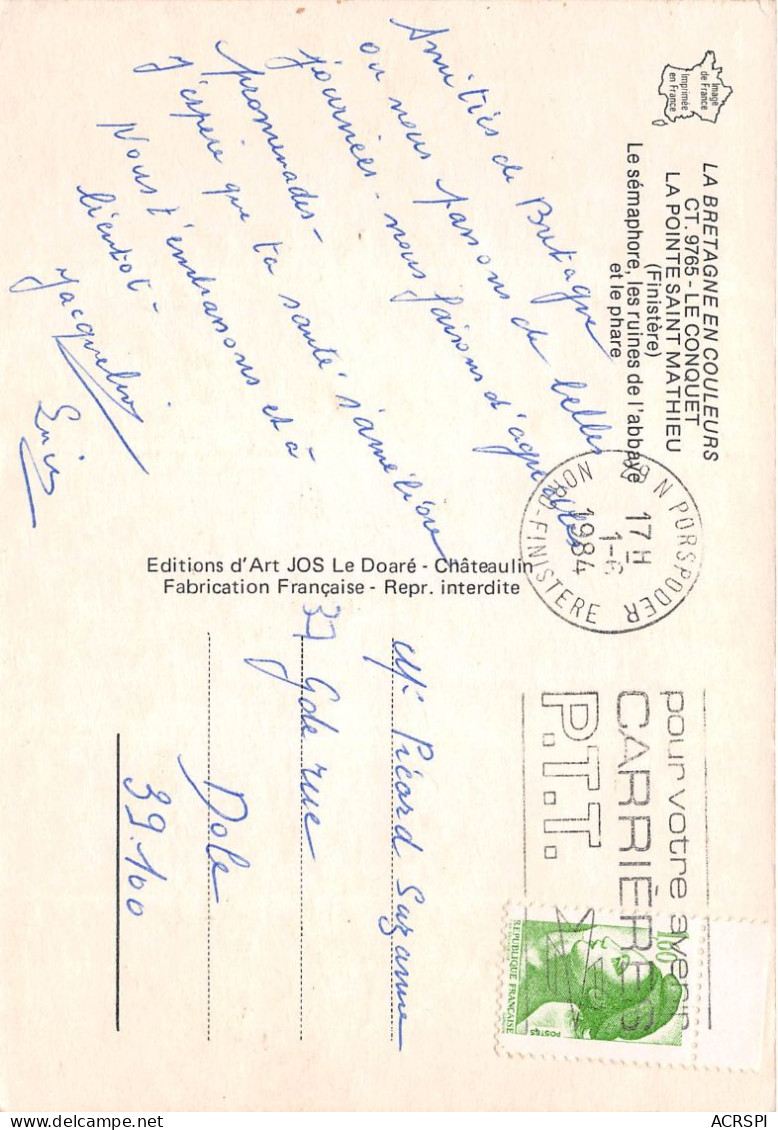 LA BRETAGNE EN COULEURS
CT. 9765 - LE CONQUET
LA POINTE SAINT MATHIEU
(Finistère)
Le sémaphore, les ruines de l'abbaye
et le phare
Image
de France
Imprimée
en France
Amitiés de Bretagne
où nous passons de belles
journées - nous faisons d'agréables
promenades -
J'espère que ta santé s'améliore
Nous t'embrassons et à
bientôt -
Jacqueline
Editions d'Art JOS Le Doaré - Châteaulin
Fabrication Française - Repr. interdite
29 N PORSPODER
17H
1-6
1984
NORD-FINISTERE
pour votre avenir
CARRIÈRES
P.T.T.
1,60
REPUBLIQUE FRANÇAISE
POSTES
Picard Suzanne
37 Gde rue
Dole
39.100
ACRSPI